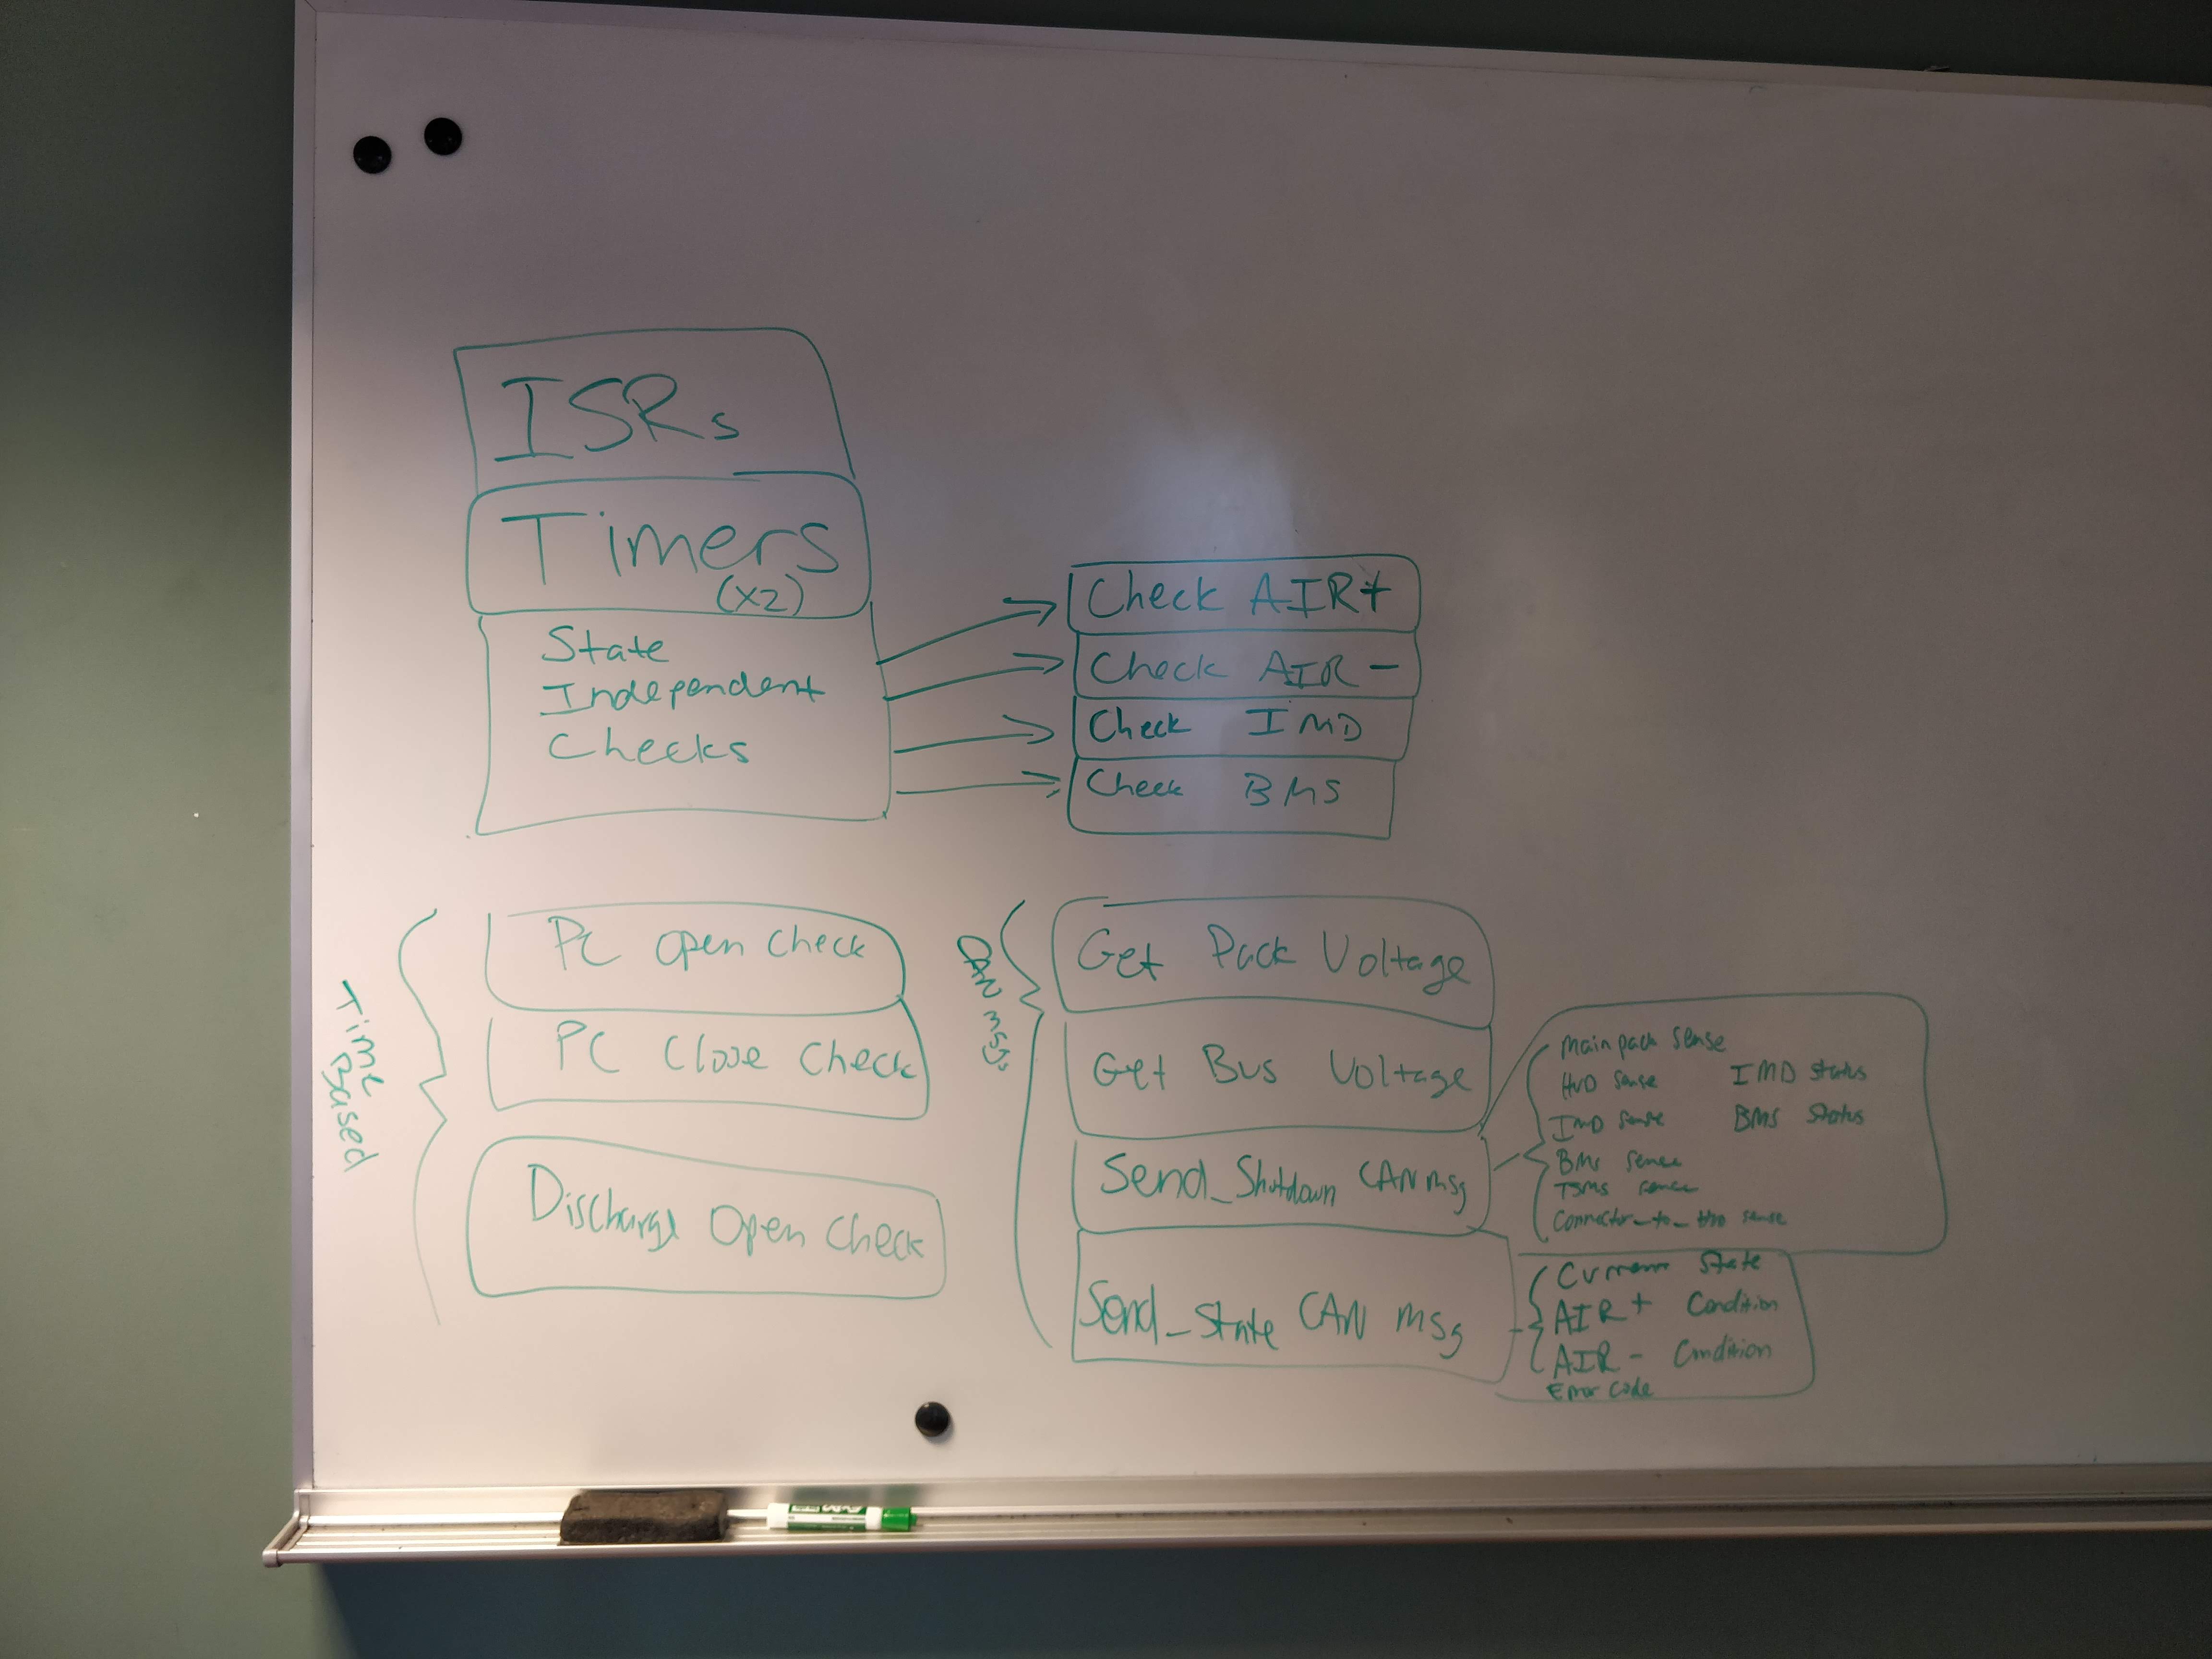 ISRs
Timers
(x2)
State
Independent
Checks
Check AIR+
Check AIR -
Check IMD
Check BMS
Time Based
PC open check
PC Close Check
Discharge Open Check
CAN msgs
Get Pack Voltage
Get Bus Voltage
Send_Shutdown CAN msg
Send_State CAN msg
Main pack sense
HVD sense
IMD sense
BMS sense
TSMS sense
Connector_to_HVD sense
IMD status
BMS Status
Current State
AIR + Condition
AIR - Condition
Error code